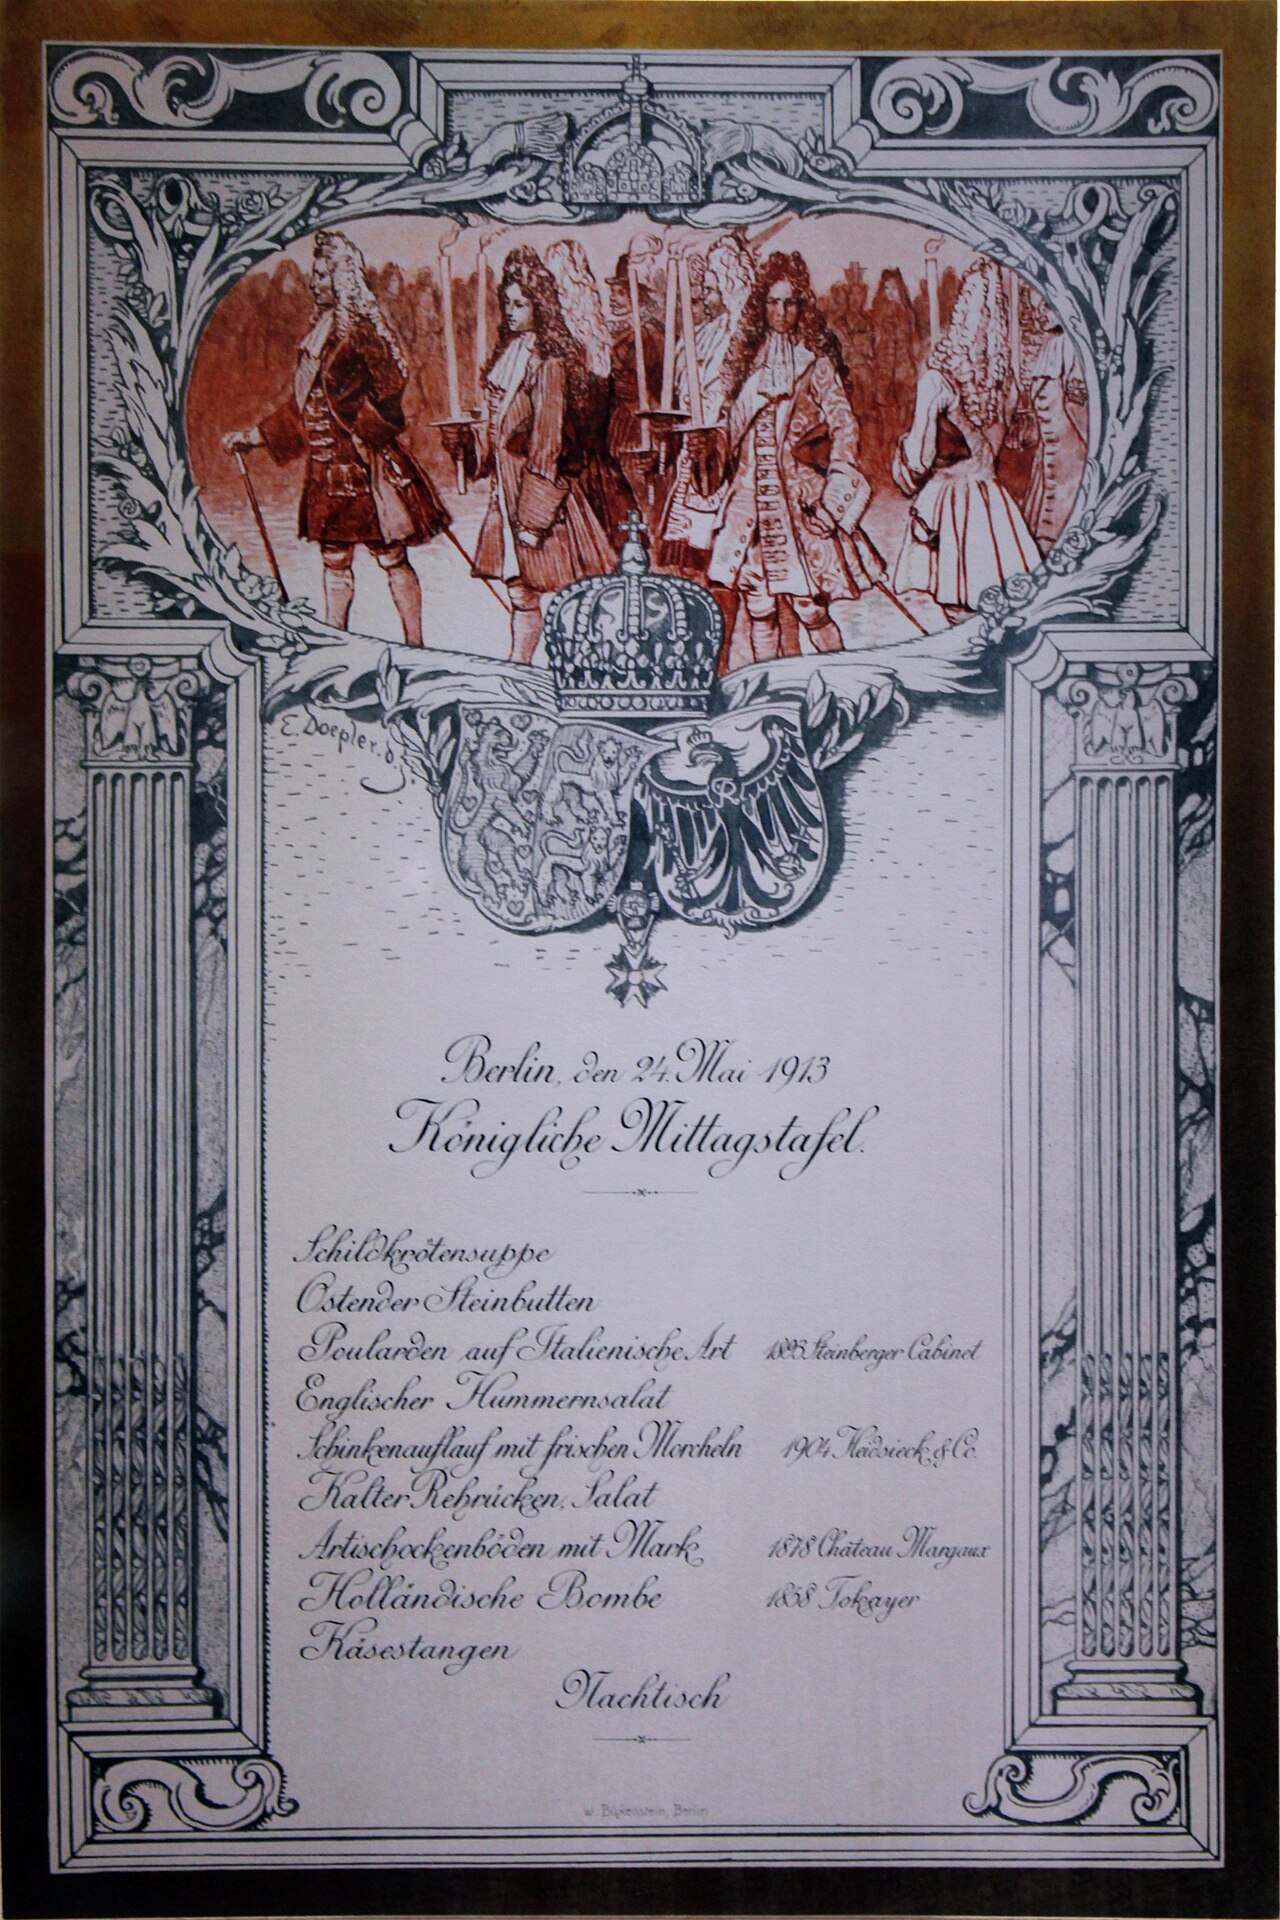 E. Doepler. d. J.
Berlin, den 24. Mai 1913
Königliche Mittagstafel.
Schildkrötensuppe
Ostender Steinbutten
Poularden auf Italienische Art 1893 Steinberger Cabinet
Englischer Hummernsalat
Schinkenauflauf mit frischen Morcheln 1904 Heidsieck & Co.
Kalter Rehrücken, Salat
Artischockenböden mit Mark 1878 Château Margaux
Holländische Bombe 1858 Tokayer
Käsestangen
Nachtisch
W. Büxenstein, Berlin